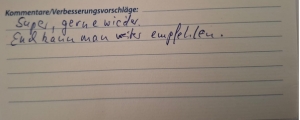 Kommentare/Verbesserungsvorschläge:
Super, gerne wieder.
Und kann man weiter empfehlen.